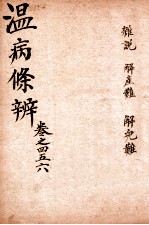 雜說 解產難 解兒難
溫病條辨
卷之四五六